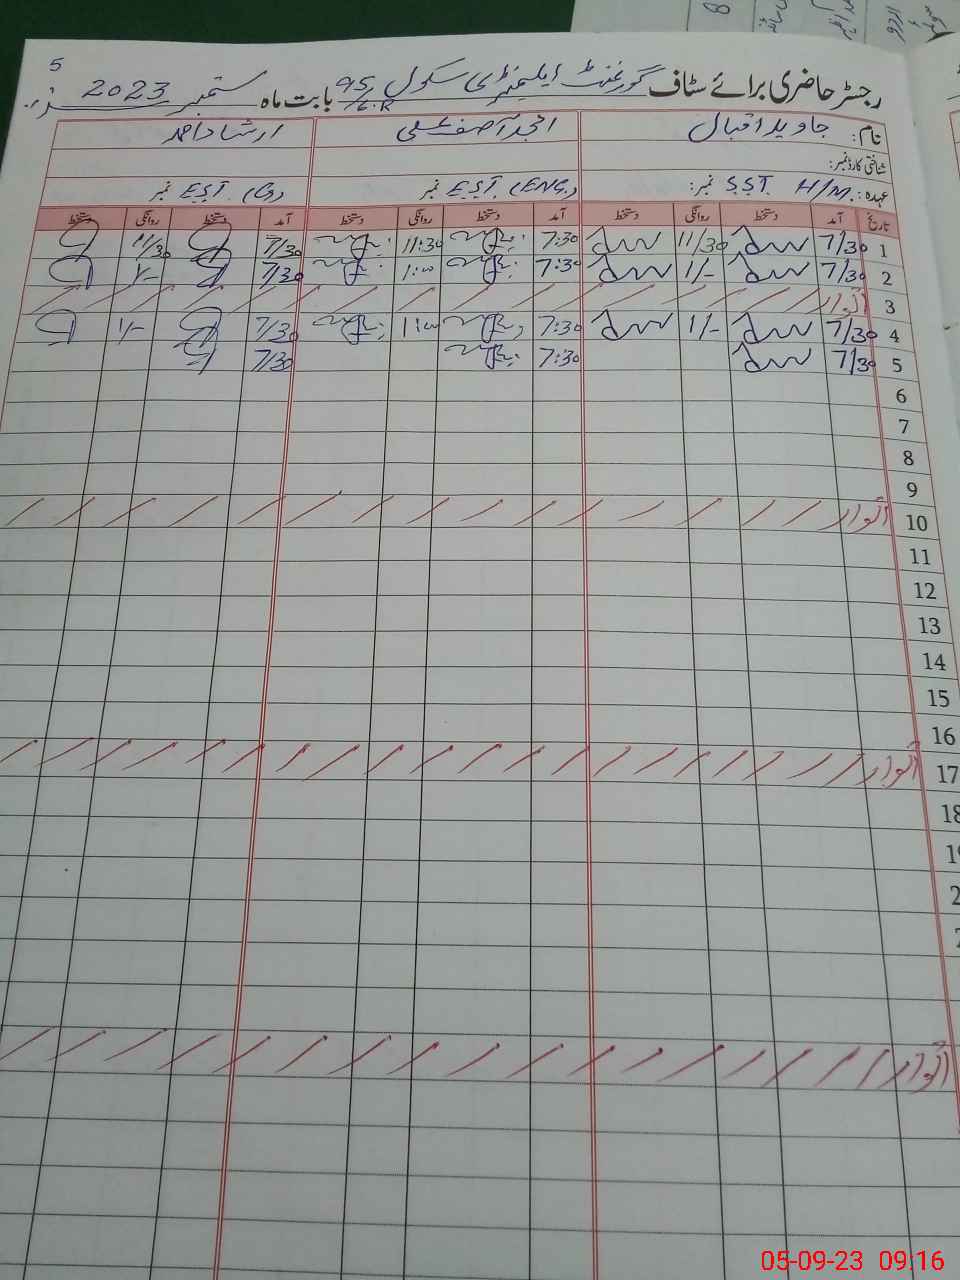 5
رجسٹر حاضری برائے سٹاف گورنمنٹ ایلیمنٹری سکول 95/6.R بابت ماہ ستمبر 2023
نام: جاوید اقبال امجد آصف علی ارشاد احمد
شناختی کارڈ نمبر:
عہدہ: S.S.T. H/M. نمبر: E.S.T. (ENG.) نمبر E.S.T. (G) نمبر
تاریخ آمد دستخط روانگی دستخط آمد دستخط روانگی دستخط آمد دستخط روانگی دستخط
1 7/30 11/30 7:30 11:30 7/30 11/30
2 7/30 1/- 7:30 1:00 7/30 1/-
3 اتوار
4 7/30 1/- 7:30 1:00 7/30 1/-
5 7/30 7:30 7/30
6
7
8
9
10 اتوار
11
12
13
14
15
16
17 اتوار
18
اتوار
05-09-23 09:16